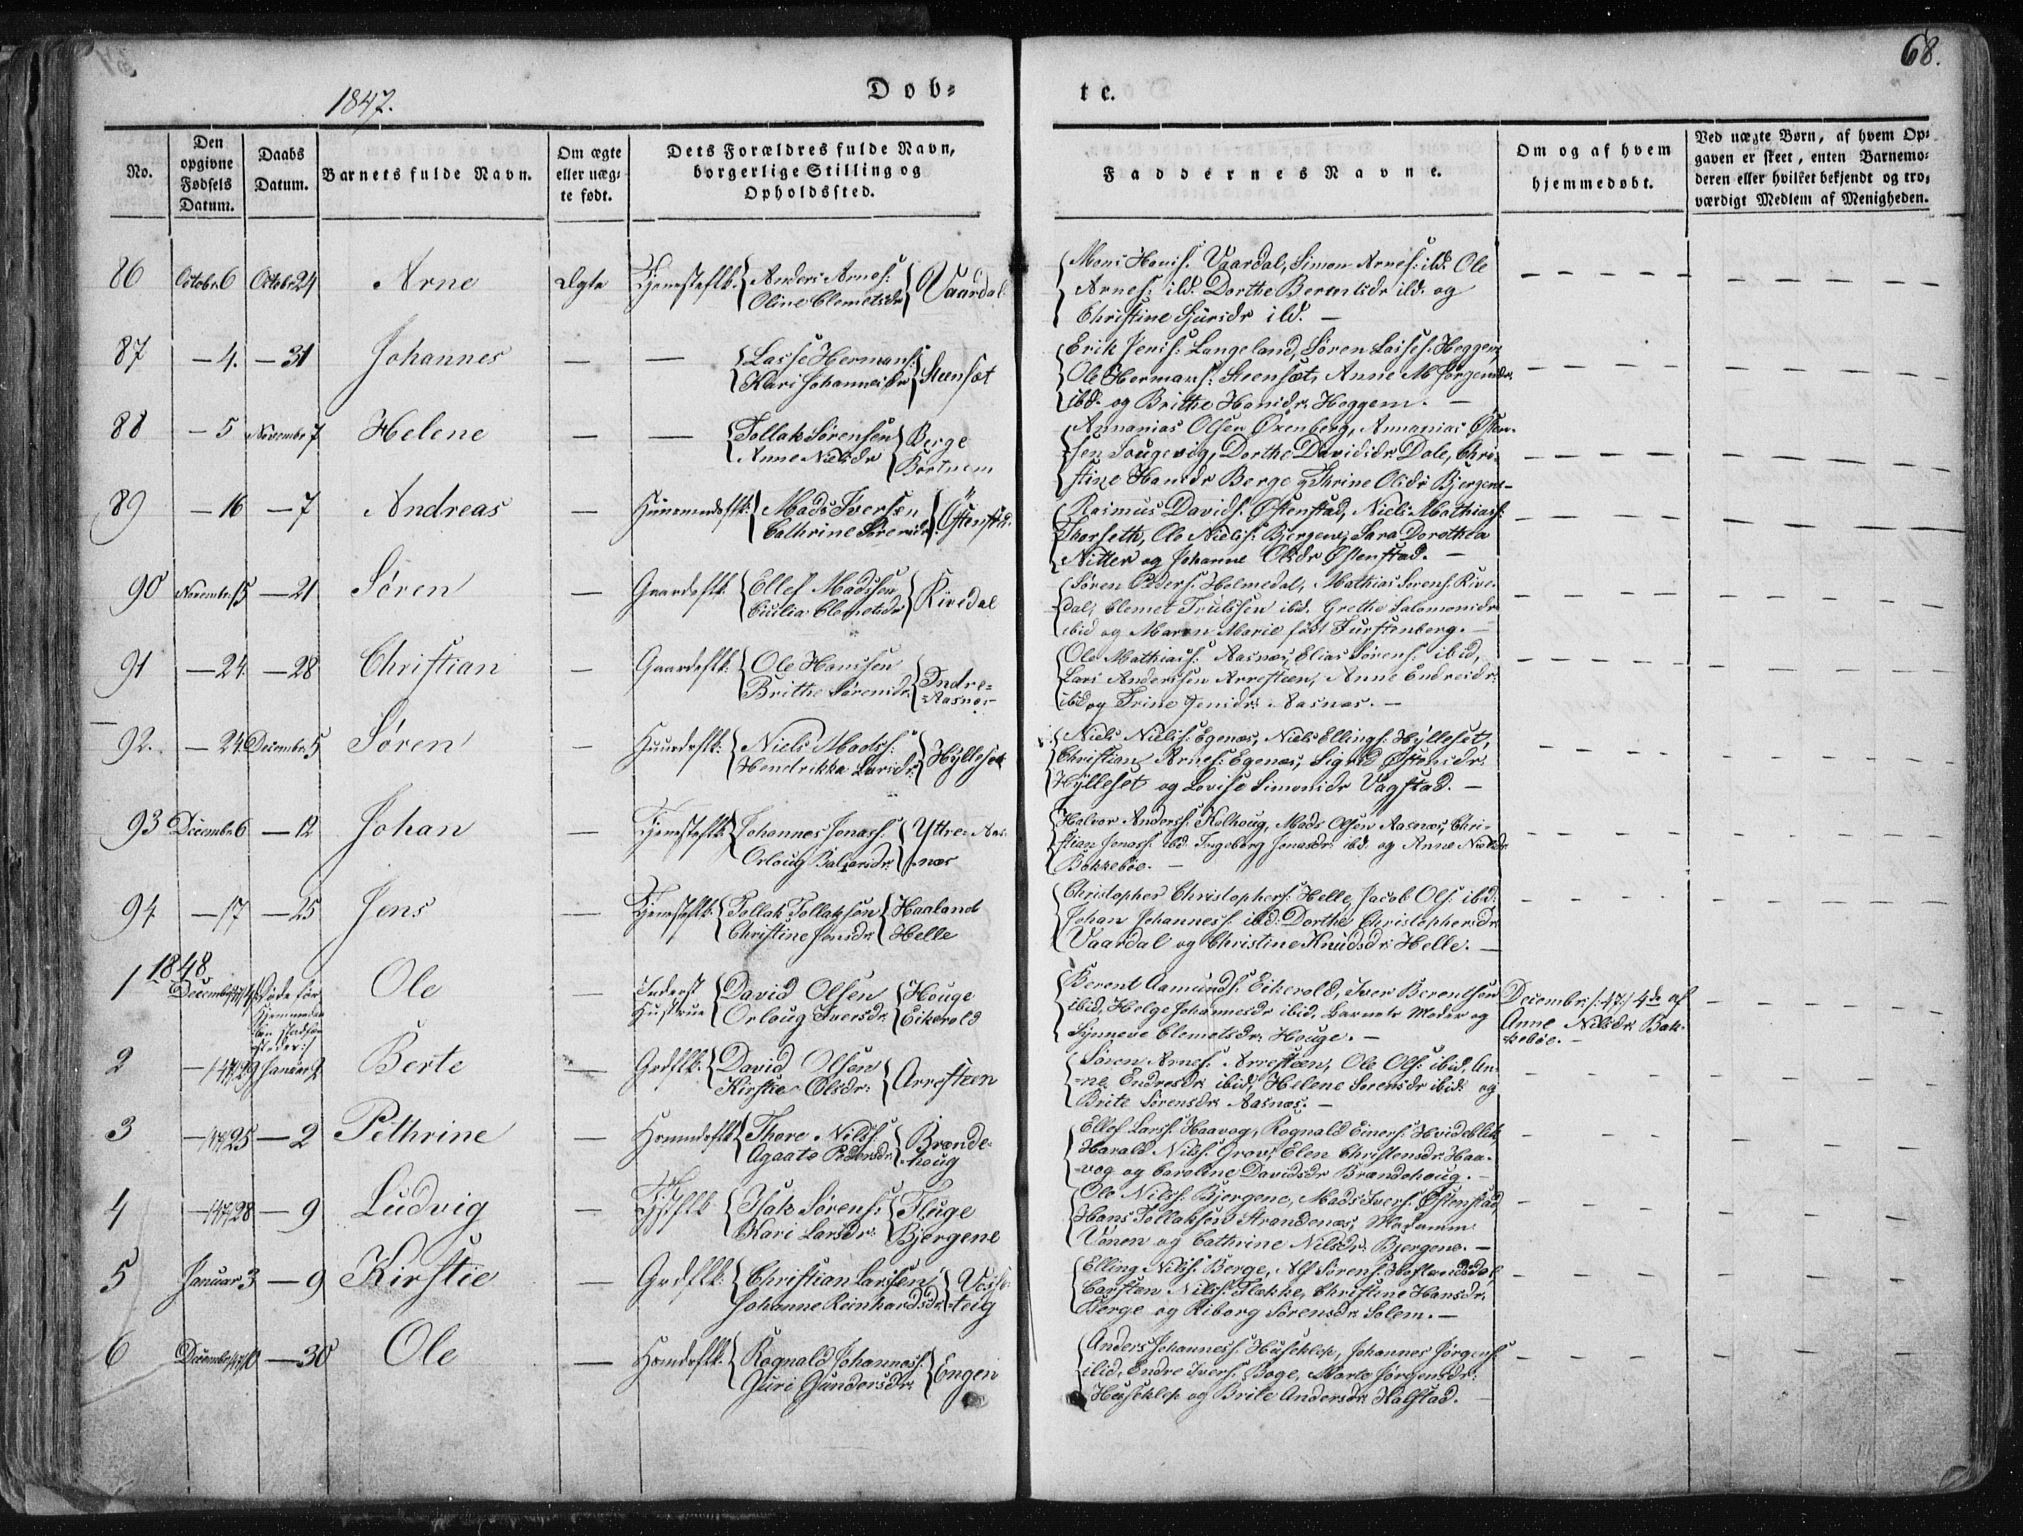 68.
1847.
Døb-
te.
No.
Den opgivne Fødsels Datum.
Daabs Datum.
Barnets fulde Navn.
Om ægte eller uæg-te født.
Dets Forældres fulde Navn, borgerlige Stilling og Opholdssted.
Faddernes Navne.
Om og af hvem hjemmedøbt.
Ved uægte Børn, af hvem Op-gaven er skeet, enten Barnemo-deren eller hvilket bekjendt og tro-værdigt Medlem af Menigheden.
86 Octobr 6 Octobr 24 Arne Ægte Tjenestefk. Anders Arnes: Oline Clemetsdr Vaardal
Mons Hans: Vaardal, Simon Arnes: ibd. Ole
Arnes: ibd. Dorthe Berntsdr ibd. og
Christine Sjursdr ibd. —
87 — 4. — 31 Johannes — — Lasse Hermans: Kari Johannesdr Steensæt
Erik Jens: Langeland, Søren Lasses: Heggem,
Ole Hermans: Steensæt, Anne M Jørgensdr
ibd. og Brithe Hansdr. Heggem. —
88 — 5 Novembr 7 Helene — — Tollak Sørensen Anne Nielsdr Berge Kortnem
Annanias Olsen Oxenberg, Annanias Østen-
sen Tougevig, Dorthe Davidsdr Dale, Chri-
stine Hansdr Berge og Thrine Olsdr Bjergene
89 — 16 — 7 Andreas — Huusmandsfk: Mads Iversen Cathrine Sørensdr Østenstad.
Rasmus Davids: Østenstad, Niels Mathias:
Thorseth, Ole Niels: Bjergene, Sara Dorothea
Nitter og Johanne Olsdr Østenstad. —
90 Novembr 15 — 21 Søren — Gaardsfk: Ellef Madssen Cicilia Clemetsdr Kivedal
Søren Peders: Holmedal, Mathias Sørens: Kive-
dal, Clemet Trulssen ibd. Grethe Salomonsdr
ibid og Maren Marie født Furstenberg. —
91 — 24. — 28 Christian — Gaardsfk: Ole Hanssen Brithe Sørensdr. Indre-Aasnæs
Ole Mathias: Aasnæs, Elias Sørens: ibid,
Lars Anderssen Arresteen, Anne Endresdr:
ibd og Trine Jensdr: Aasnæs. —
92. — 24. Decembr. 5 Søren — Huusdsfk: Niels Madss: Hendrikka Larsdr: Hylleset
Niels Niels: Egenæs, Niels Ellings: Hylleset,
Christian Arnes: Egenæs, Sigrid Østensdr:
Hylleset og Lovise Simonsdr Vagstad. —
93 Decembr. 6 — 12 Johan — Tjenestefk: Johannes Jonass: Orloug Balzersdr. Yttre-Aasnæs
Halvor Anderss: Kolhoug, Mads Olsen Aasnæs, Chri-
stian Jonass: ibd. Ingeborg Jonasdr. ibd. og Anne Nielsdr
Bekkebøe. —
94. — 17 — 25 Jens — Tjenestefk: Tollak Tollaksen Christine Jensdr: Haaland Helle
Christopher Christophers: Helle, Jacob Ols: ibd:
Johan Johannes: ibd: Dorthe Christophersdr
Vaardal og Christine Knudsdr: Helle. —
1848
1 Decembr Ole — Inderst Hustrue David Olsen Orloug Iversdr: Houge Eikerold
Berent Aamunds: Eikerold, Iver Berentsen
ibid, Helge Johannesdr ibid, Barnets Moder og
Synneve Clemetsdr: Houge. —
Decembr: /:47:/ 4de af
Anne Nilsdr. Bek-
kebøe. —
2 29 Januar 2 Berte — Grdfk: David Olsen Kirstie Olsdr: Arresteen
Søren Arnes: Arresteen, Ole Ols: ibid, An-
ne Endresdr: ibid, Helene Sørensdr ibid: og
Brite Sørensdr: Aasnæs. —
3 25 — 2 Pethrine — Thore Nils: Agaate Pedersdr: Brænde-houg
Ellef Larss: Haavog, Rognald Einers: Hvideblik,
Harald Nils: Grov, Elen Christensdr: Haa-
vog og Caroline Davidsdr Brændehoug. —
4 28 — 9 Ludvig — Isak Sørens: Kari Larsdr: Fluge Bjergene
Ole Nils: Bjergene, Mads Ivers: Østenstad,
Hans Tollaksen Strandenæs, Madamm
Vonen og Cathrine Nilsdr: Bjergene. —
5 Januar 3 — 9 Kirstie — Grdfk: Christian Larssen Johanne Reinhardsdr:
Elling Nils: Berge, Alf Sørens: Hoflandsdal,
Carsten Nils: Flække, Christine Hansdr:
Berge og Riborg Sørensdr: Solem. —
6 Decembr — 30 Ole — Rognald Johanness: Guri Gundersdr: Engen
Anders Johanness: Huseklep, Johannes Jørgens:
ibid, Endre Ivers: Boge, Marte Jørgensdr:
Huseklep og Brite Andersdr: Kalstad. —